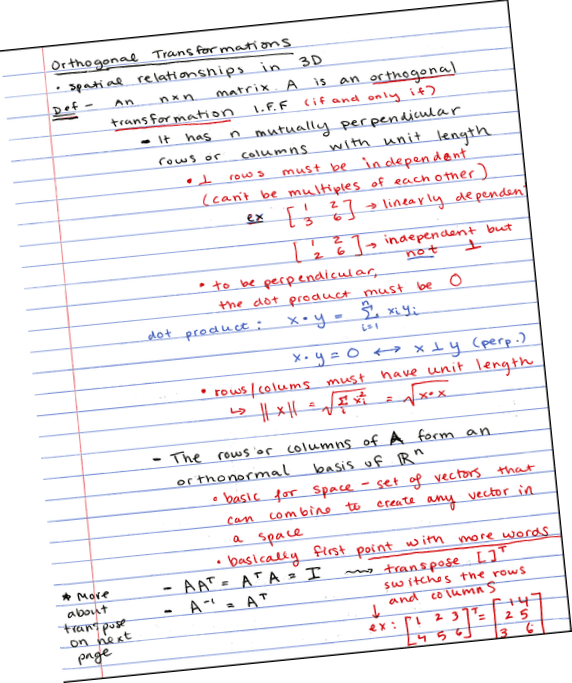 Orthogonal Transformations
• spatial relationships in 3D
Def - An nxn matrix A is an orthogonal
transformation I.F.F (if and only if)
- It has n mutually perpendicular
rows or columns with unit length
• ⊥ rows must be independent
(can't be multiples of each other)
ex [1 2; 3 6] → linearly dependent
[1 2; 2 6] → independent but
not ⊥
• to be perpendicular,
the dot product must be 0
dot product: x • y = Σ_{i=1}^{n} xᵢyᵢ
x • y = 0 ↔ x ⊥ y (perp.)
• rows/colums must have unit length
↳ ||x|| = √(Σᵢ xᵢ²) = √(x•x)
- The rows or columns of A form an
orthonormal basis of ℝⁿ
• basic for space - set of vectors that
can combine to create any vector in
a space
• basically first point with more words
- AAᵀ = AᵀA = I ⟿ transpose []ᵀ
switches the rows
and columns
- A⁻¹ = Aᵀ
ex: [1 2 3; 4 5 6]ᵀ = [1 4; 2 5; 3 6]
* More
about
transpose
on next
page